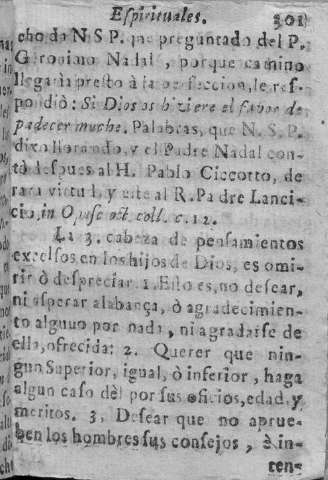 Espirituales. 301
cho da N.S P. que preguntado del P.
Geronimo Nadal, porque camino
llegaria presto à la perfeccion, le res-
pondiò: Si Dios os hiziere el favor de
padecer mucho. Palabras, que N. S. P.
dixo llorando, y el Padre Nadal con-
tò despues al H. Pablo Ciccotto, de
rara virtud, y este al R. Padre Lanci-
cio, in Opusc. coll. c. 12.
La 3. cabeza de pensamientos
excelsos en los hijos de Dios, es
rir ò despreciar. 1. Esto es, no desear,
ni esperar alabança, ò agradecimien-
to alguno por nada, ni agradarse de
ella, ofrecida: 2. Querer que nin-
gun Superior, igual, ò inferior, haga
algun caso dèl por sus oficios, edad, y
meritos. 3. Desear que no aprue-
ben los hombres sus consejos, è in-
ten-